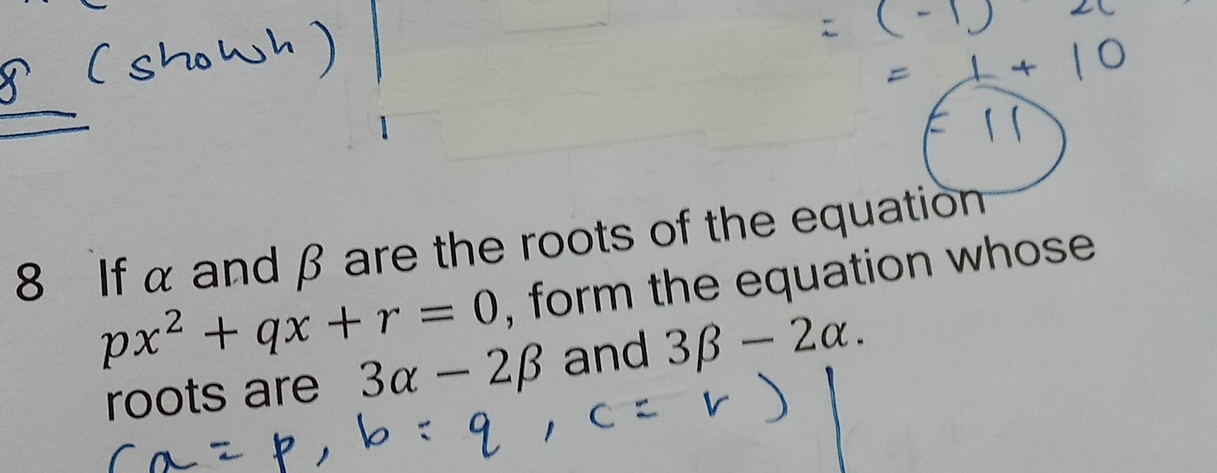 8 (shown)
= (-1)
= 1 + 10
= 11
8 If α and β are the roots of the equation
px² + qx + r = 0, form the equation whose
roots are 3α − 2β and 3β − 2α.
(a = p, b = q, c = r)